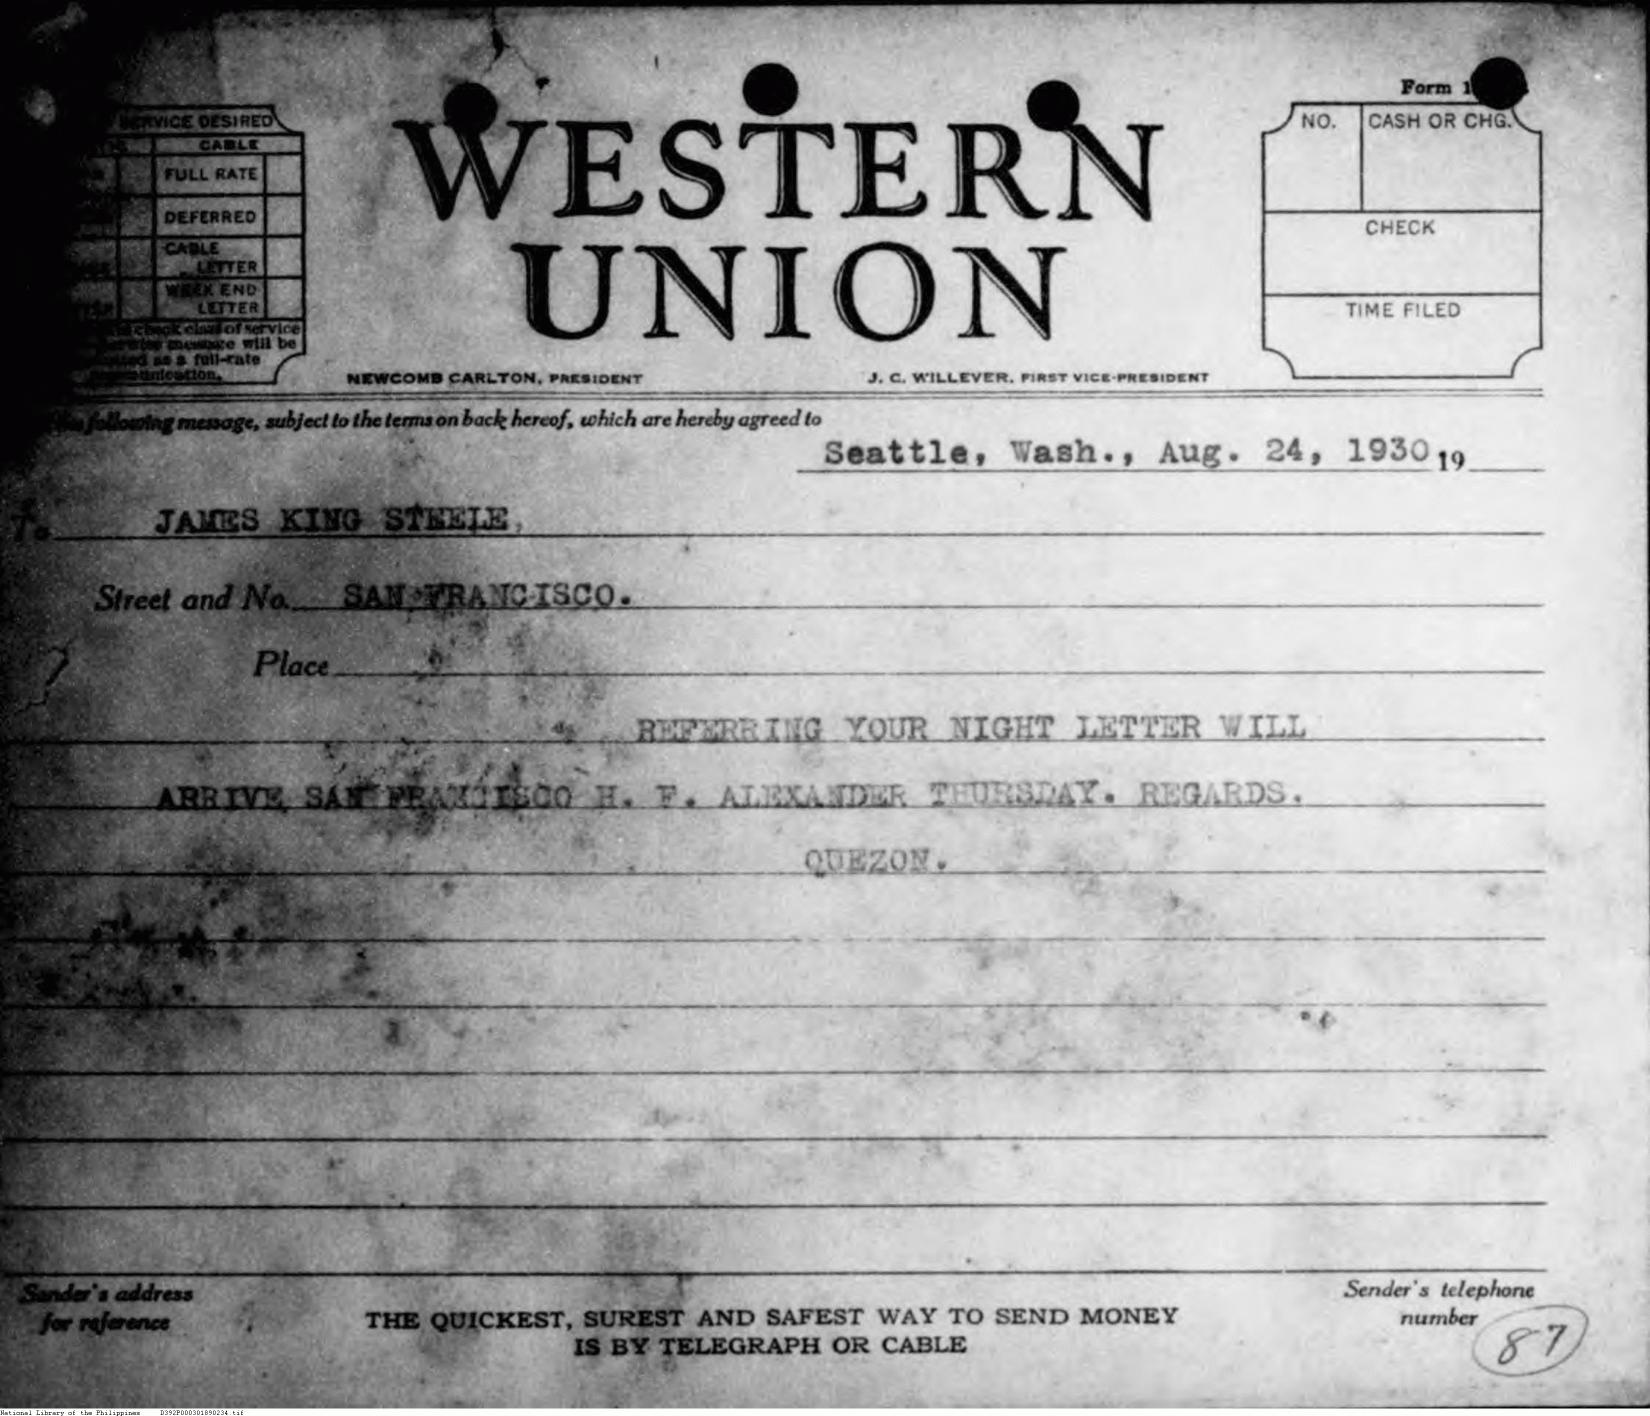 SERVICE DESIRED
CABLE
FULL RATE
DEFERRED
CABLE
LETTER
WEEK END
LETTER
check class of service
message will be
as a full-rate
WESTERN
UNION
NEWCOMB CARLTON, PRESIDENT
J. C. WILLEVER, FIRST VICE-PRESIDENT
Form
NO.
CASH OR CHG.
CHECK
TIME FILED
following message, subject to the terms on back hereof, which are hereby agreed to
Seattle, Wash., Aug. 24, 1930 19
To JAMES KING STEELE,
Street and No. SAN FRANCISCO.
Place
REFERRING YOUR NIGHT LETTER WILL
ARRIVE SAN FRANCISCO H. F. ALEXANDER THURSDAY. REGARDS.
QUEZON.
Sender's address
for reference
THE QUICKEST, SUREST AND SAFEST WAY TO SEND MONEY
IS BY TELEGRAPH OR CABLE
Sender's telephone
number
87
National Library of the Philippines D392P000301890234.tif